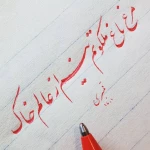 مرغ باغ ملکوتم نیم از عالم خاک